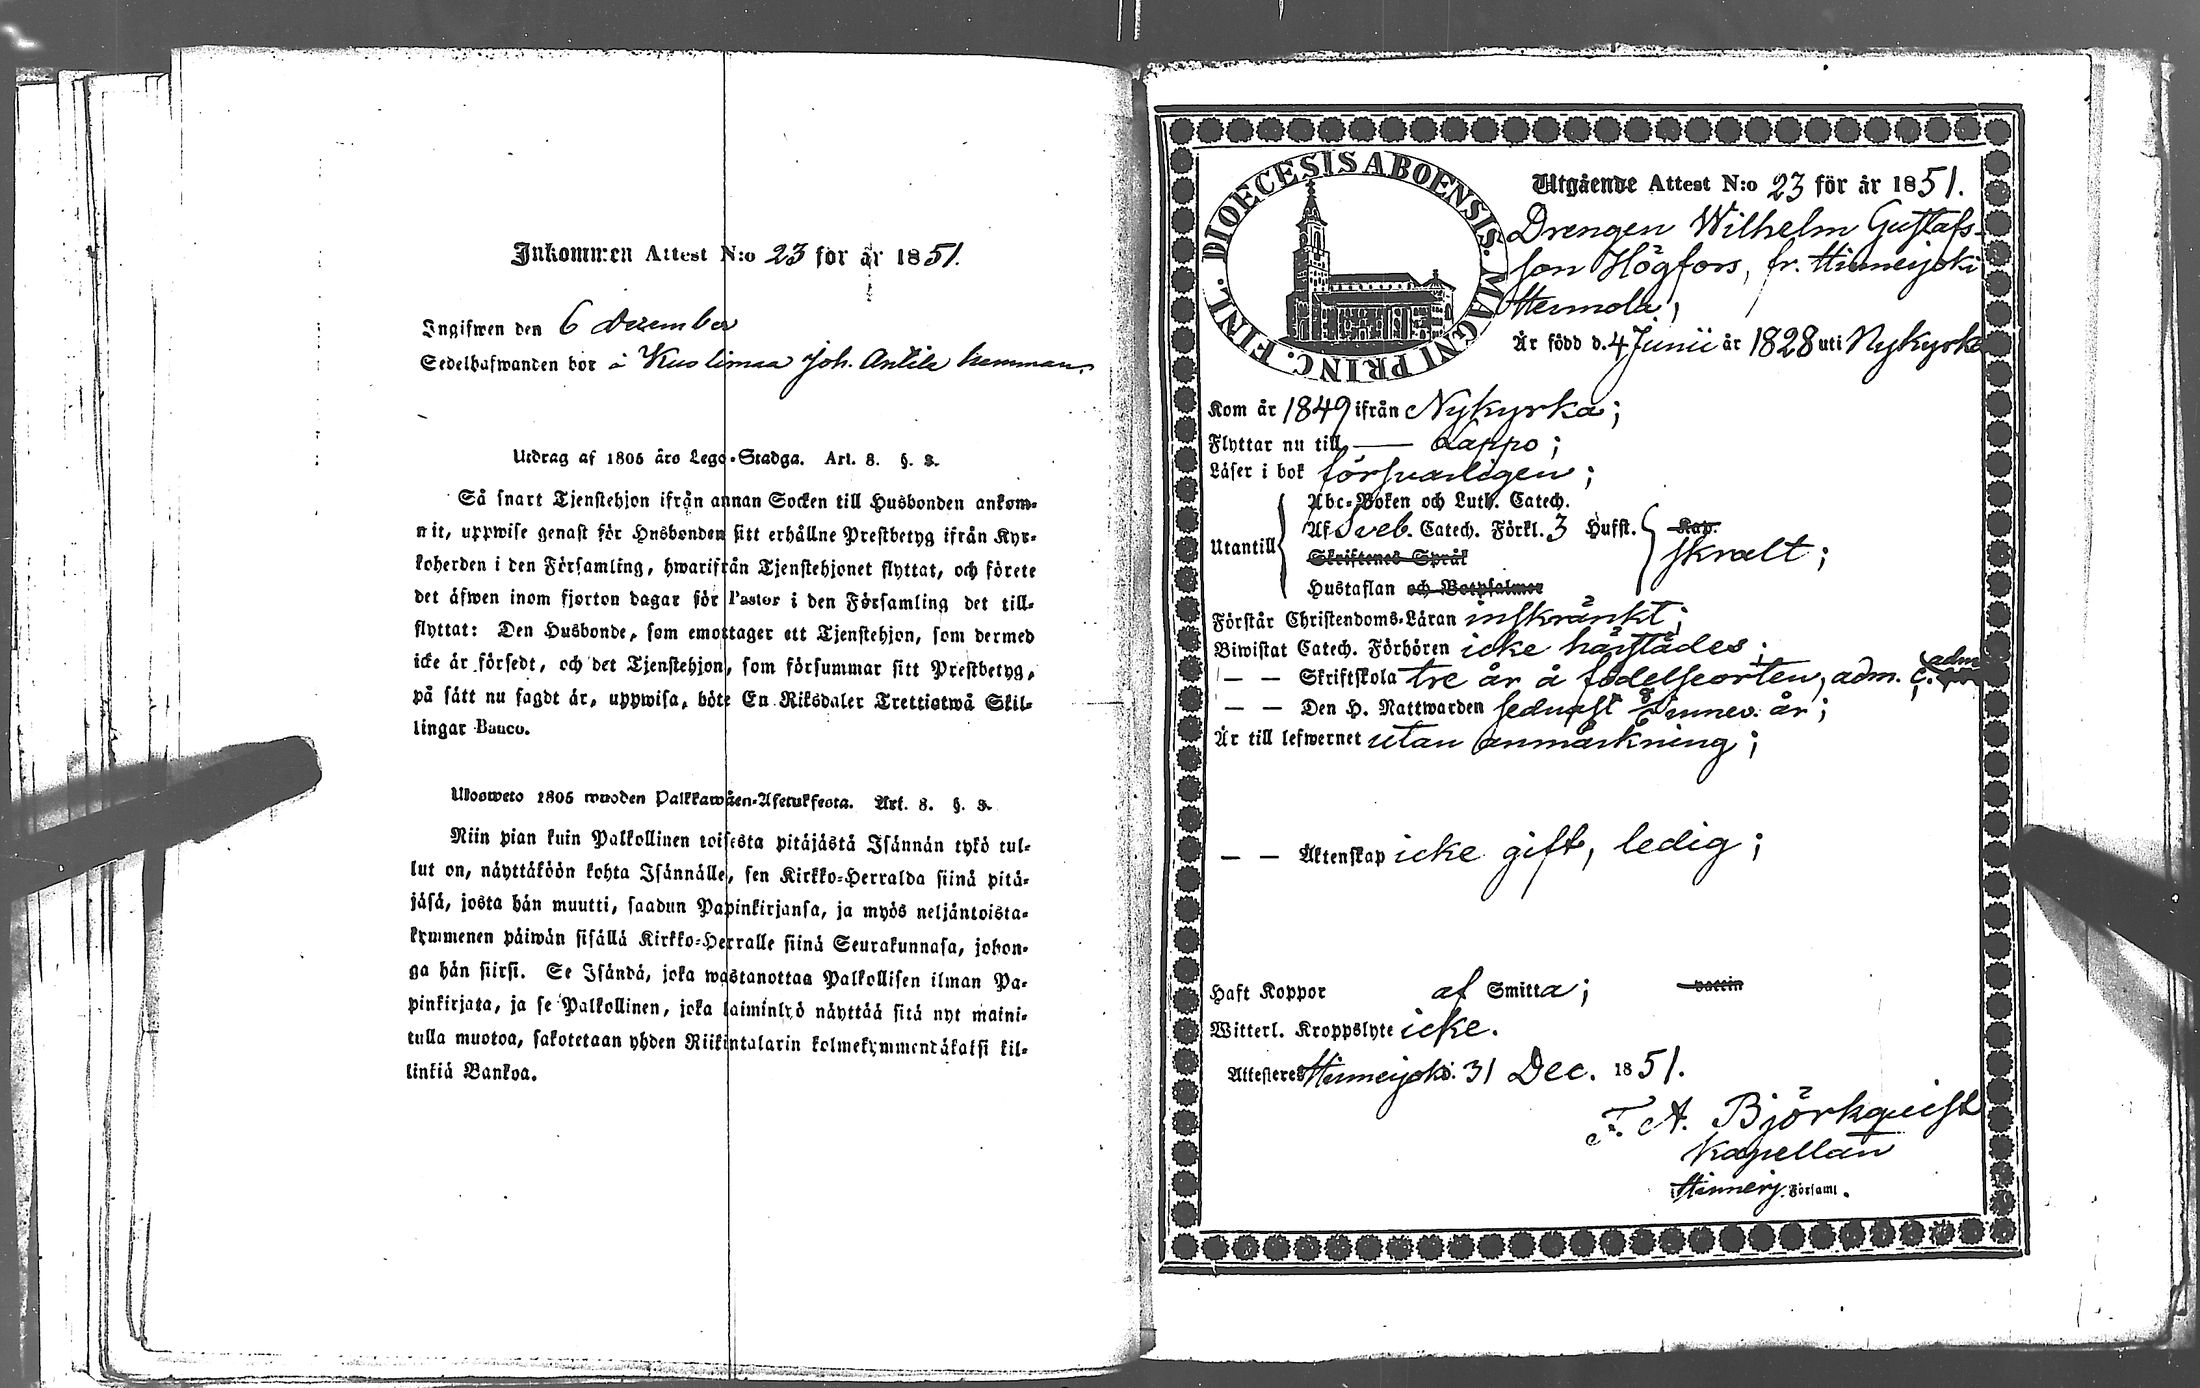 Inkommen Attest N:o 23 för år 1851.
Ingifwen den 6 december
Sedelhafwanden bor å Kustimaa Joh. Antila hemman.
Utdrag af 1805 års Lego-Stadga. Art. 8. §. 3.
Så snart Tjenstehjon ifrån annan Socken till Husbonden ankom-
mit, uppwise genast för Husbonden sitt erhållne Prestbetyg ifrån Kyr-
koherden i den Församling, hwarifrån Tjenstehjonet flyttat, och förete
det äfwen inom fjorton dagar för Pastor i den Församling det till-
flyttat: Den Husbonde, som emottager ett Tjenstehjon, som dermed
icke är försedt, och det Tjenstehjon, som försummar sitt Prestbetyg,
på sätt nu sagdt är, uppwisa, böte En Riksdaler Trettiotwå Skil-
lingar Banco.
Ulosweto 1805 wuoden Palkkawäen-Asetuksesta. Art. 8. §. 3.
Niin pian kuin Palkollinen toisesta pitäjästä Isännän tykö tul-
lut on, näyttäköön kohta Isännälle, sen Kirkko-Herralda siinä pitä-
jäsä, josta hän muutti, saadun Papinkirjansa, ja myös neljäntoista-
kymmenen päiwän sisällä Kirkko-Herralle siinä Seurakunnasa, johon-
ga hän siirsi. Se Isändä, joka wastanottaa Palkollisen ilman Pa-
pinkirjata, ja se Palkollinen, joka laiminlyö näyttää sitä nyt maini-
tulla muotoa, sakotetaan yhden Riikintalarin kolmekymmendäkaksi kil-
linkiä Bankoa.
DIOECESIS ABOENSIS. MAGNI PRINC. FINL.
Utgående Attest N:o 23 för år 1851.
Drengen Wilhelm Gustafs-
son Högfors, fr. Hinneijoki
Hermola,
Är född d. 4 Junii år 1828 uti Nykyrka
Kom år 1849 ifrån Nykyrka;
Flyttar nu till — Lappo;
Läser i bok försvarligen;
Abc-Boken och Luth. Catech.
Utantill Af Sveb. Catech. Förkl. 3 Hufst. Kap.
skralt;
Skriftenes Språk
Hustaflan och Botpsalmer
Förstår Christendoms-Läran inskränkt;
Biwistat Catech. Förhören icke härstädes;
— — Skriftskola tre år å födelseorten, adm.
— — Den H. Nattwarden sednast innev. år;
Är till lefwernet utan anmärkning;
— — Äktenskap icke gift, ledig;
Haft Koppor af Smitta; vaccin
Witterl. Kroppslyte icke.
Attesteres Hinneijoki d. 31 Dec. 1851.
F. A. Björkqvist
Kapellan
i Hinnerj. Församl.